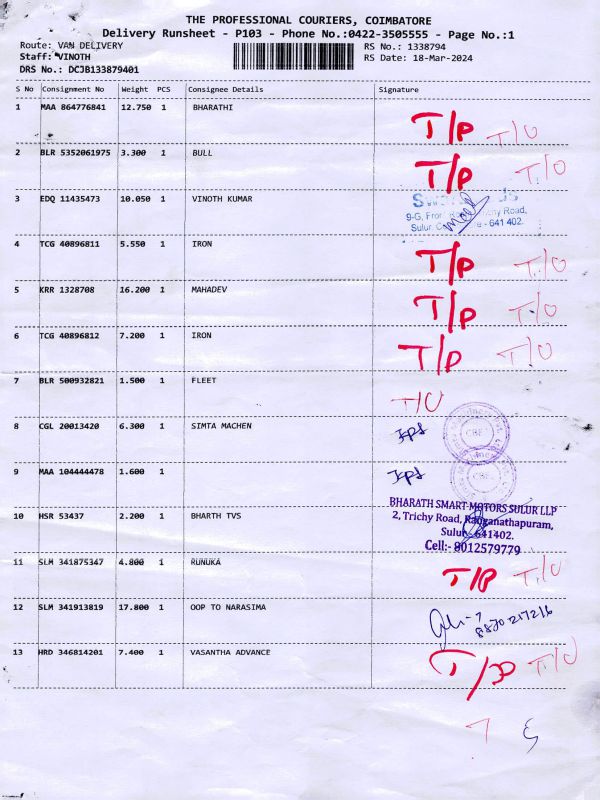 THE PROFESSIONAL COURIERS, COIMBATORE
Delivery Runsheet - P103 - Phone No.:0422-3505555 - Page No.:1
Route: VAN DELIVERY RS No.: 1338794
Staff: VINOTH RS Date: 18-Mar-2024
DRS No.: DCJB133879401
S No Consignment No Weight PCS Consignee Details Signature
1 MAA 864776841 12.750 1 BHARATHI T/P T/O
2 BLR 5352061975 3.300 1 BULL T/P T/O
3 EDQ 11435473 10.050 1 VINOTH KUMAR
9-G, Trichy Road,
Sulur - 641 402.
4 TCG 40896811 5.550 1 IRON T/P T/O
5 KRR 1328708 16.200 1 MAHADEV T/P T/O
6 TCG 40896812 7.200 1 IRON T/P T/O
7 BLR 500932821 1.500 1 FLEET T/O
8 CGL 20013420 6.300 1 SIMTA MACHEN CBE
9 MAA 104444478 1.600 1 CBE
BHARATH SMART MOTORS SULUR LLP
10 HSR 53437 2.200 1 BHARTH TVS 2, Trichy Road, Ranganathapuram,
Sulur - 641402.
Cell:- 8012579779
11 SLM 341875347 4.800 1 RUNUKA T/P T/O
12 SLM 341913819 17.800 1 OOP TO NARASIMA
13 HRD 346814201 7.400 1 VASANTHA ADVANCE T/P T/O